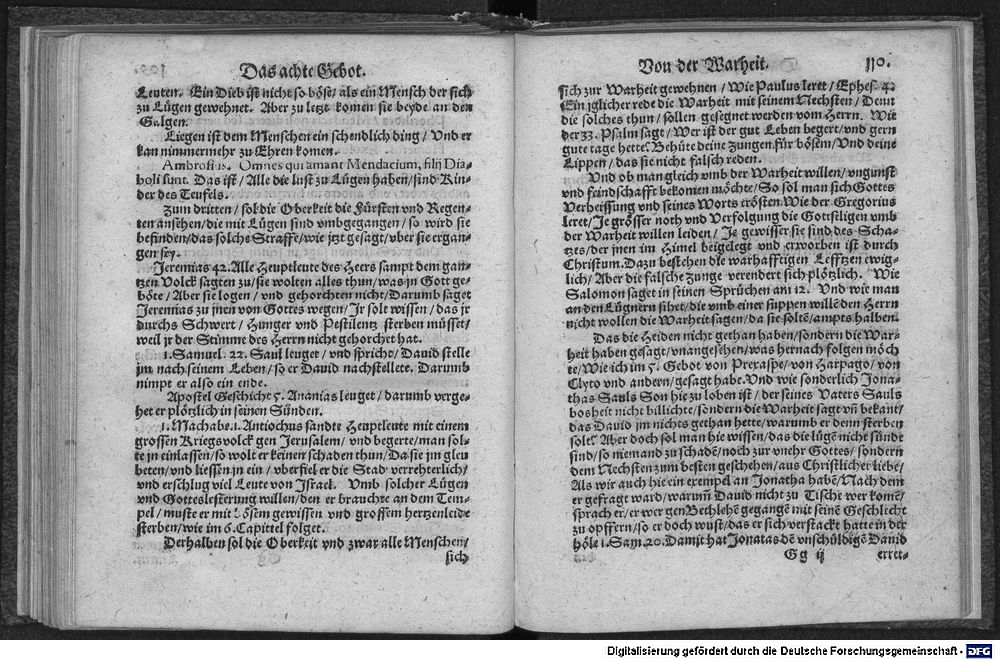 Das achte Gebot.
Leuten. Ein Dieb ist nicht so böse/ als ein Mensch der sich
zu Lügen gewehnet. Aber zu letzt komen sie beyde an den
Galgen.
Liegen ist dem Menschen ein schendlich ding/ Vnd er
kan nimmermehr zu Ehren komen.
Ambrosius. Omnes qui amant Mendacium, filij Dia-
boli sunt. Das ist/ Alle die lust zu Lügen haben/ sind Kin-
der des Teufels.
Zum dritten/ sol die Oberkeit die Fürsten vnd Regen-
ten ansehen/ die mit Lügen sind vmbgegangen/ so wird sie
befinden/ das solche Straffe/ wie jtzt gesagt/ vber sie ergan-
gen sey.
Jeremias 42. Alle Heuptleute des Heers sampt dem gan-
tzen Volck sagten zu/ sie wolten alles thun/ was jn Gott ge-
böte/ Aber sie logen/ vnd gehorchten nicht/ Darumb saget
Jeremias zu jnen von Gottes wegen/ Jr solt wissen/ das jr
durchs Schwert/ Hunger vnd Pestilentz sterben müsset/
weil jr der Stimme des Herrn nicht gehorchet hat.
1. Samuel. 22. Saul leuget/ vnd spricht/ Dauid stelle
jm nach seinem Leben/ so er Dauid nachstellete. Darumb
nimpt er also ein ende.
Apostel Geschicht 5. Ananias leuget/ darumb verge-
het er plötzlich in seinen Sünden.
1. Machabe. 1. Antiochus sandte Heuptleute mit einem
grossen Kriegsvolck gen Jerusalem/ vnd begerte/ man sol-
te jn einlassen/ so wolt er keinen schaden thun/ Da sie jm gleu
beten/ vnd liessen jn ein/ vberfiel er die Stad verrehterlich/
vnd erschlug viel Leute von Israel. Vmb solcher Lügen
vnd Gotteslesterung willen/ den er brauchte an dem Tem-
pel/ muste er mit bösem gewissen vnd grossem hertzenleide
sterben/ wie im 6. Capittel folget.
Derhalben sol die Oberkeit vnd zwar alle Menschen/
sich
Von der Warheit. 110.
sich zur Warheit gewehnen/ Wie Paulus leret/ Ephes. 4.
Ein jglicher rede die Warheit mit seinem Nechsten/ Denn
die solches thun/ sollen gesegnet werden vom Herrn. Wie
der 33. Psalm sagt/ Wer ist der gut Leben begert/ vnd gern
gute tage hette? Behüte deine zungen für bösem/ Vnd deine
Lippen/ das sie nicht falsch reden.
Vnd ob mangleich vmb der Warheit willen/ vngunst
vnd feindschafft bekomen möchte/ So sol man sich Gottes
Verheissung vnd seines Worts trösten. Wie der Gregorius
leret/ Je grösser noth vnd Verfolgung die Gottseligen vmb
der Warheit willen leiden/ Je gewisser sie sind des Scha-
tzes/ der jnen im Himel beigelegt vnd erworben ist durch
Christum. Dazu bestehen die warhafftigen Lefftzen ewig-
lich/ Aber die falsche zunge verendert sich plötzlich. Wie
Salomon saget in seinen Sprüchen am 12. Vnd wie man
an den Lügnern sihet/ die vmb einer suppen willē den Herrn
nicht wollen die Warheit sagen/ da sie soltē/ ampts halben.
Das die Heiden nicht gethan haben/ sondern die War-
heit haben gesagt/ vnangesehen/ was hernach folgen möch
te/ Wie ich im 5. Gebot von Prexaspe/ von Harpago/ von
Clyto vnd andern/ gesagt habe. Vnd wie sonderlich Jona-
thas Sauls Son hie zu loben ist/ der seines Vaters Sauls
bosheit nicht billichte/ sondern die Warheit sagt vn̄ bekant/
das Dauid jm nichts gethan hette/ warumb er denn sterben
solt? Aber doch sol man hie wissen/ das die lügē nicht sünde
sind/ so niemand zu schadē/ noch zur vnehr Gottes/ sondern
dem Nechsten zum besten geschehen/ aus Christlicher liebe/
Als wir auch hie ein exempel an Jonatha habē/ Nach dem
er gefragt ward/ warum̄ Dauid nicht zu Tische wer komē/
sprach er/ er wer gen Bethlehē gegangē mit seinē Geschlecht
zu opffern/ so er doch wust/ das er sich versteckt hatte in der
höle 1. Sam. 20. Damit hat Jonatas dē vnschüldigē Dauid
Gg ij erret-
Digitalisierung gefördert durch die Deutsche Forschungsgemeinschaft - DFG